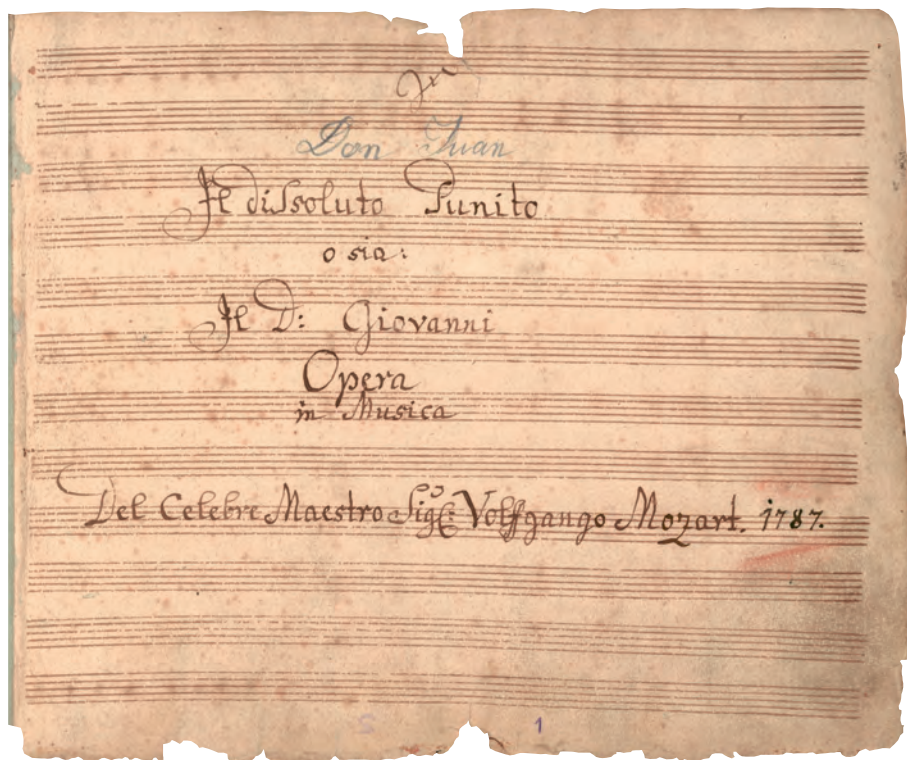 Don Juan
Il dissoluto Punito
o sia:
Il D: Giovanni
Opera
in Musica
Del Celebre Maestro Sigre Volfgango Mozart. 1787.
1